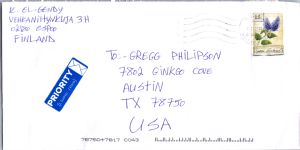 K. EL-GENDY
VEHKANIITYNKUJA 3H
02180 ESPOO
FINLAND
TO:- GREGG PHILIPSON
7802 GINKGO COVE
AUSTIN
TX 78750
USA
PRIORITY
78750+7817 C043